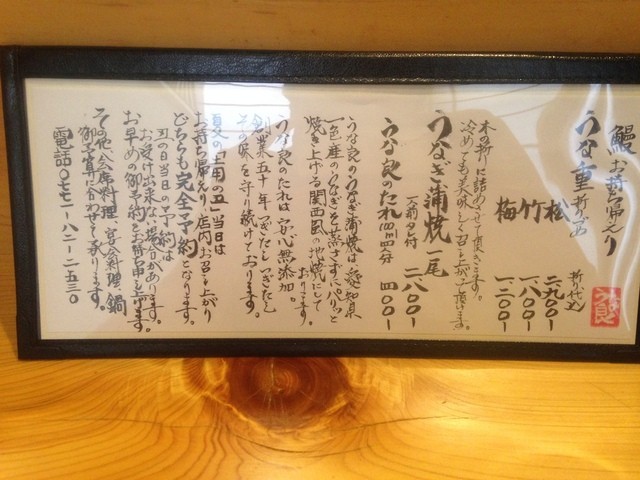 鰻お持ち帰り
うな重 折りづめ
折り代込
松 二九〇〇-
竹 一八〇〇-
梅 一二〇〇-
木の折りに詰めさせて頂きます。
冷めても美味しく召し上がって頂けます。
うなぎ蒲焼 一尾 二八〇〇-
一人前タレ付
うな良のたれ 四〇〇-
うな良のうなぎ蒲焼は、愛知県
一色産のうなぎを蒸さずにパリっと
焼き上げる関西風の地焼にして
おります。
うな良のたれは安心無添加。
創業五十年つぎたしつぎたし
その味を守り続けております。
夏の「土用の丑」当日は
お持ち帰えり、店内お召し上がり
どちらも完全予約になります。
丑の日当日の予約は
お受け出来ない場合があります。
お早めの御予約をお待ち申し上げます。
その他、会席料理、宴会料理、鍋
御予算に合わせて承ります。
電話〇七七一-八二-二五三〇
うな良